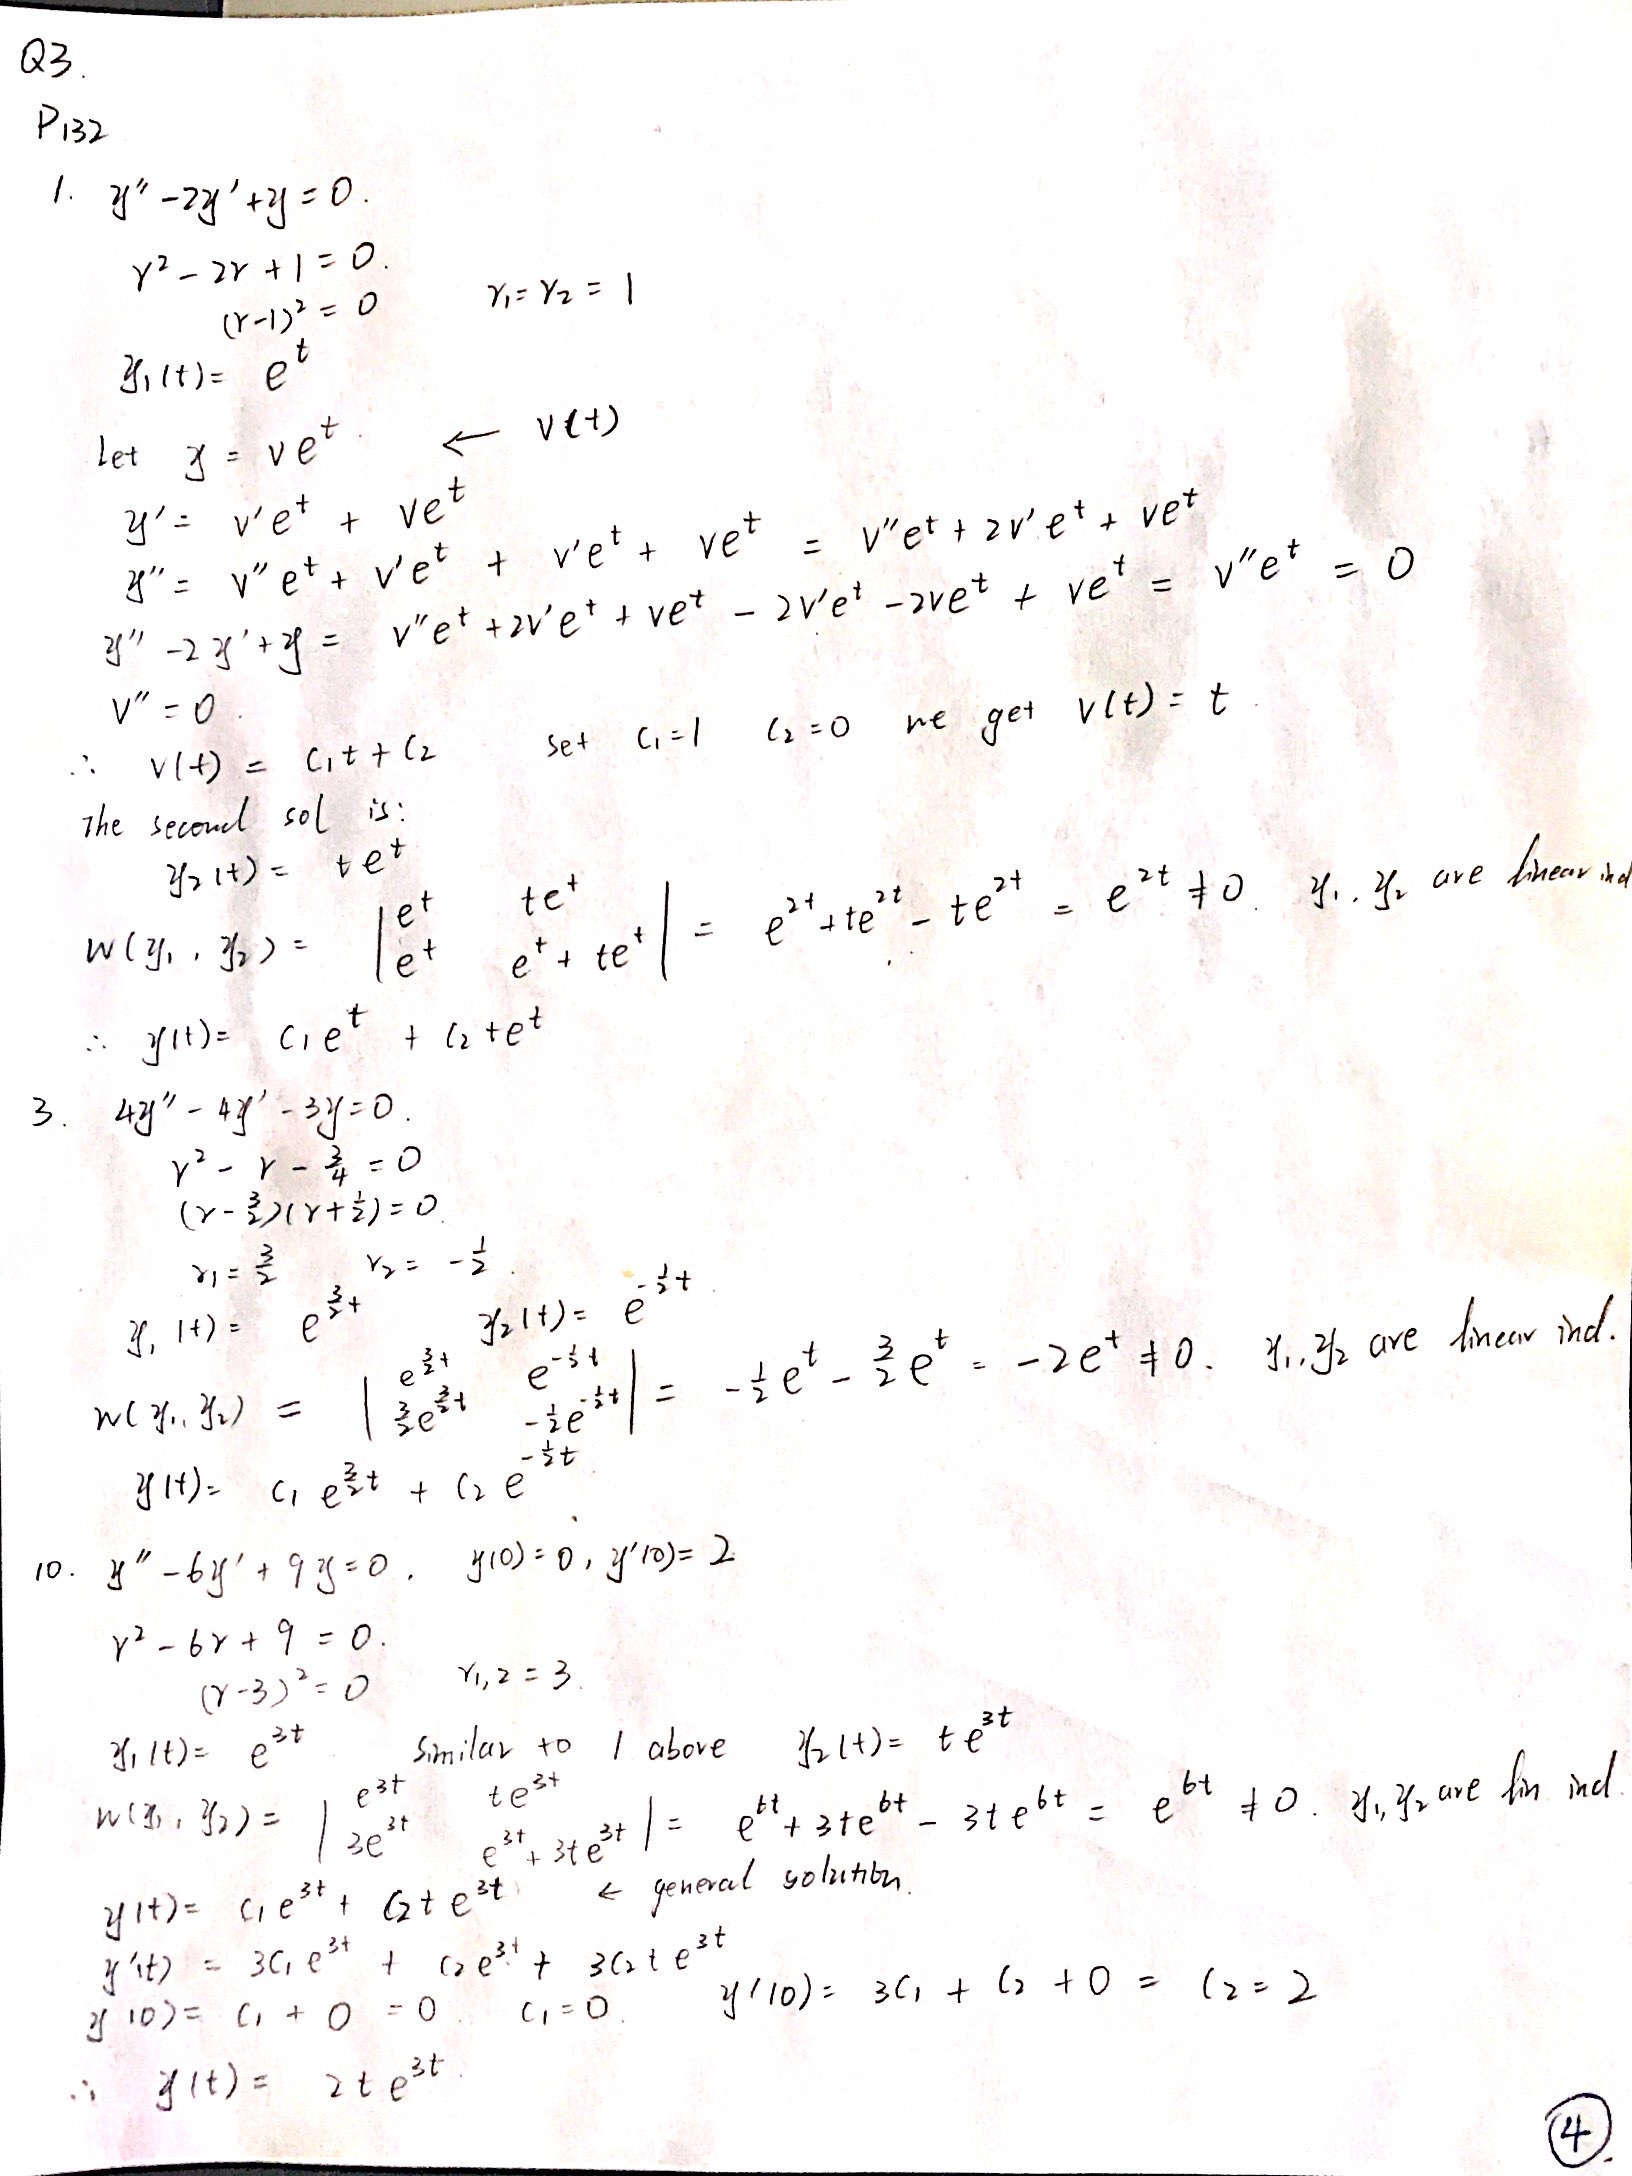 Q3.
P132
1. y'' - 2y' + y = 0.
r² - 2r + 1 = 0.
(r-1)² = 0 r₁ = r₂ = 1
y₁(t) = e^t
Let y = ve^t. ← v(t)
y' = v'e^t + ve^t
y'' = v''e^t + v'e^t + v'e^t + ve^t = v''e^t + 2v'e^t + ve^t
y'' - 2y' + y = v''e^t + 2v'e^t + ve^t - 2v'e^t - 2ve^t + ve^t = v''e^t = 0
v'' = 0.
∴ v(t) = c₁t + c₂ set c₁ = 1 c₂ = 0 we get v(t) = t.
The second sol is:
y₂(t) = te^t
W(y₁, y₂) = | e^t te^t ; e^t e^t + te^t | = e^2t + te^2t - te^2t = e^2t ≠ 0. y₁, y₂ are linear ind
∴ y(t) = c₁e^t + c₂te^t
3. 4y'' - 4y' - 3y = 0.
r² - r - 3/4 = 0
(r - 3/2)(r + 1/2) = 0.
r₁ = 3/2 r₂ = -1/2.
y₁(t) = e^(3/2 t) y₂(t) = e^(-1/2 t).
W(y₁, y₂) = | e^(3/2 t) e^(-1/2 t) ; 3/2 e^(3/2 t) -1/2 e^(-1/2 t) | = -1/2 e^t - 3/2 e^t = -2e^t ≠ 0. y₁, y₂ are linear ind.
y(t) = c₁e^(3/2 t) + c₂e^(-1/2 t)
10. y'' - 6y' + 9y = 0. y(0) = 0, y'(0) = 2
r² - 6r + 9 = 0.
(r-3)² = 0 r₁,₂ = 3.
y₁(t) = e^3t Similar to 1 above y₂(t) = te^3t
W(y₁, y₂) = | e^3t te^3t ; 3e^3t e^3t + 3te^3t | = e^6t + 3te^6t - 3te^6t = e^6t ≠ 0. y₁, y₂ are lin ind.
y(t) = c₁e^3t + c₂te^3t ← general solution.
y'(t) = 3c₁e^3t + c₂e^3t + 3c₂te^3t
y(0) = c₁ + 0 = 0. c₁ = 0. y'(0) = 3c₁ + c₂ + 0 = c₂ = 2
∴ y(t) = 2te^3t.
4